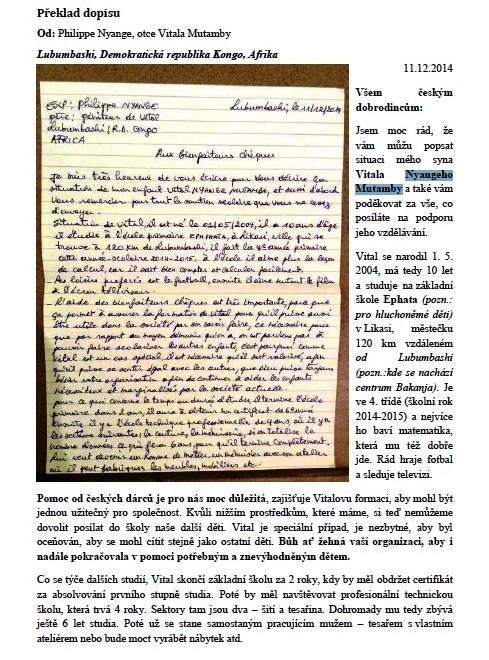 Překlad dopisu
Od: Philippe Nyange, otce Vitala Mutamby
Lubumbashi, Demokratická republika Kongo, Afrika
11.12.2014
EXP: Philippe NYANGE
père: géniteur de Vital
Lubumbashi / R.D. Congo
AFRICA
Lubumbashi, le 11/12/2014
Aux Bienfaiteurs Chèques
Je suis très heureux de vous écrire pour vous décrire la
situation de mon enfant Vital NYANGE MUTAMBA, et aussi d'abord
vous remercier pour tout le soutien scolaire que vous ne cessez
d'envoyer.
Situation de Vital, il est né le 01/05/2004, il a 10 ans d'âge
il étudie à l'école primaire EPHPHATA, à Likasi, ville qui se
trouve à 120 km de Lubumbashi, il fait la 4e année primaire
cette année scolaire 2014-2015, à l'école il aime plus la leçon
de calcul, car il sait bien compter et calculer facilement.
Ses loisirs préférés est le football, ensuite il aime suivre le film
à l'écran téléviseur.
L'aide des bienfaiteurs chèques est très importante, para que
ça permet à assurer la formation de Vital pour qu'il puisse aussi
être utile dans la société par son savoir faire, ce nécessaire parce
que par rapport au moyen démuni qu'on a, on est parvenu pas à
pouvoir faire scolariser les autres enfants, c'est pourquoi comme
Vital est un cas spécial, il est nécessaire qu'il soit valorisé, afin
qu'il puisse se sentir égal avec les autres, que Dieu puisse toujours
bénir votre organisation afin de continuer à aider les enfants
nécessiteux et marginalisés par la société actuelle.
pour ce qui concerne le temps ou durée d'études, il termine l'école
primaire dans 2 ans, il aura à obtenir un certificat de 6e année
ensuite il y a l'école technique professionnelle de 4 ans où il y a
les sections suivantes: la couture, la menuiserie, si on totalise le
nombre d'années ce qui fera 6 ans pour qu'il termine complètement.
Il veut devenir un homme de métier, un menuisier avec son atelier
où il peut fabriquer les meubles, mobiliers etc.
Všem českým
dobrodincům:
Jsem moc rád, že
vám můžu popsat
situaci mého syna
Vitala Nyangeho
Mutamby a také vám
poděkovat za vše, co
posíláte na podporu
jeho vzdělávání.
Vital se narodil 1. 5.
2004, má tedy 10 let
a studuje na základní
škole Ephata (pozn.:
pro hluchoněmé děti)
v Likasi, městečku
120 km vzdáleném
od Lubumbashi
(pozn.:kde se nachází
centrum Bakanja). Je
ve 4. třídě (školní rok
2014-2015) a nejvíce
ho baví matematika,
která mu též dobře
jde. Rád hraje fotbal
a sleduje televizi.
Pomoc od českých dárců je pro nás moc důležitá, zajišťuje Vitalovu formaci, aby mohl být
jednou užitečný pro společnost. Kvůli nižším prostředkům, které máme, si teď nemůžeme
dovolit posílat do školy naše další děti. Vital je speciální případ, je nezbytné, aby byl
oceňován, aby se mohl cítit stejně jako ostatní děti. Bůh ať žehná vaší organizaci, aby i
nadále pokračovala v pomoci potřebným a znevýhodněným dětem.
Co se týče dalších studií, Vital skončí základní školu za 2 roky, kdy by měl obdržet certifikát
za absolvování prvního stupně studia. Poté by měl navštěvovat profesionální technickou
školu, která trvá 4 roky. Sektory tam jsou dva – šití a tesařina. Dohromady mu tedy zbývá
ještě 6 let studia. Poté už se stane samostaným pracujícím mužem – tesařem s vlastním
ateliérem nebo bude moct vyrábět nábytek atd.